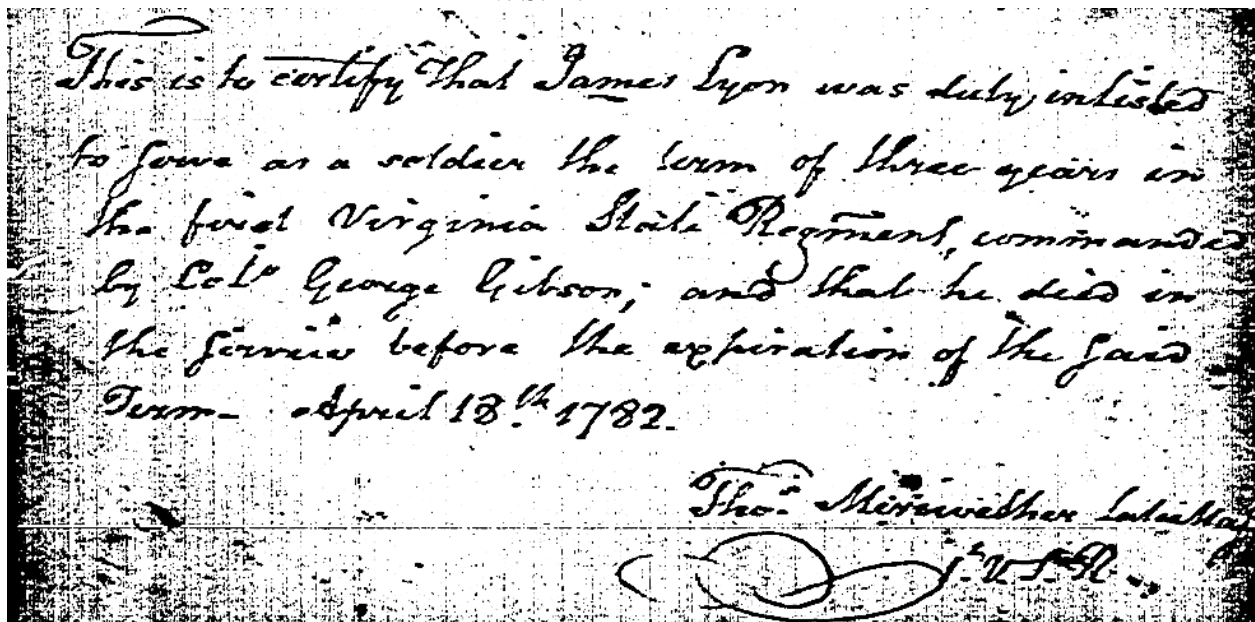 This is to certify that James Lyon was duly inlisted
to serve as a soldier the term of three years in
the first Virginia State Regiment, commanded
by Colo George Gibson; and that he died in
the service before the expiration of the said
Term - April 18th 1782.
Thos. Meriwether late Maj
1st V S R